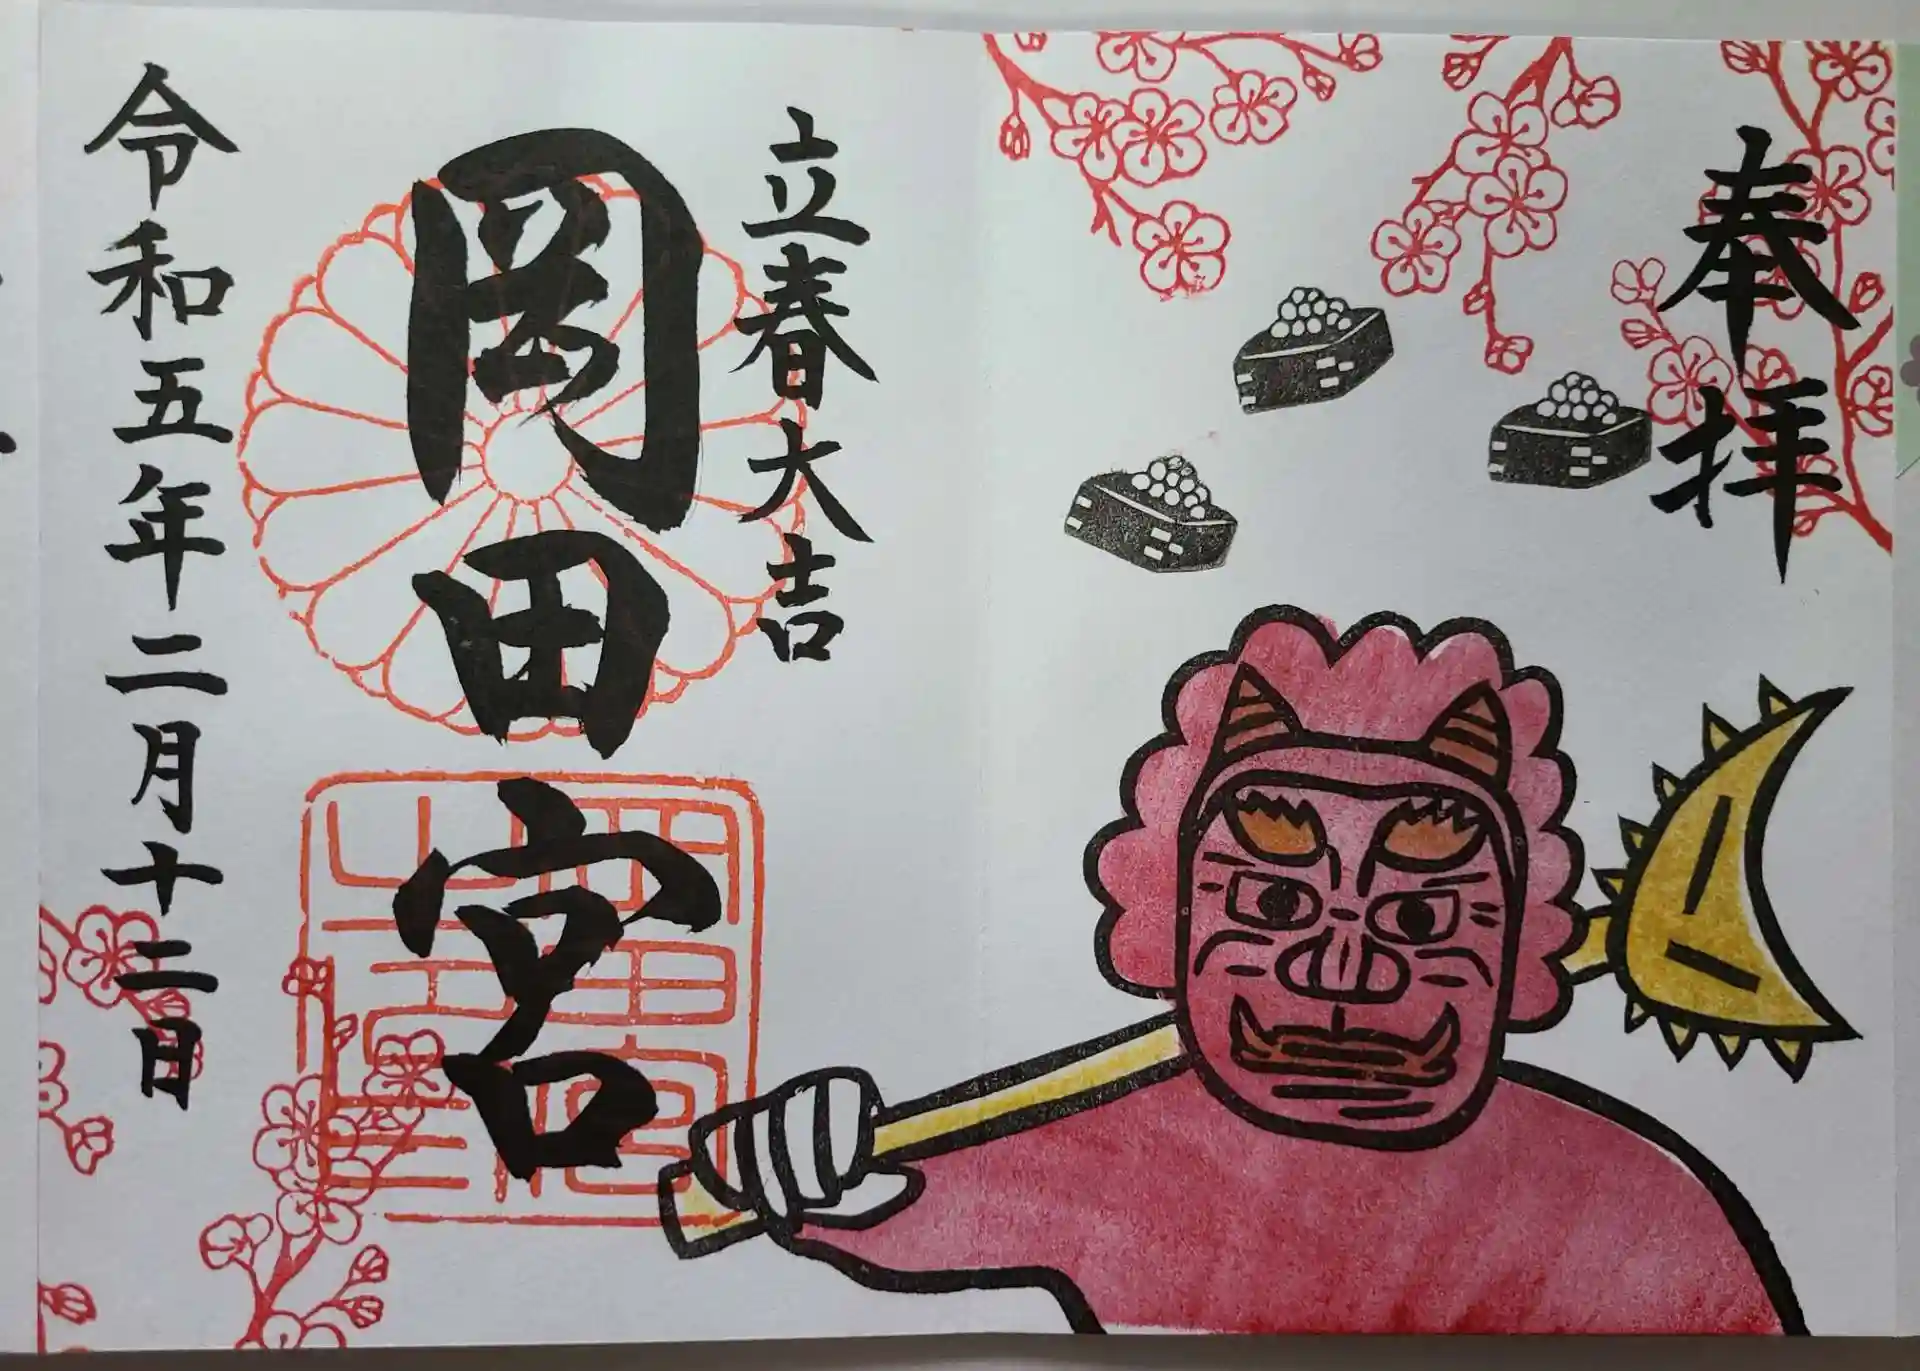 奉拝
立春大吉
岡田宮
令和五年二月十二日